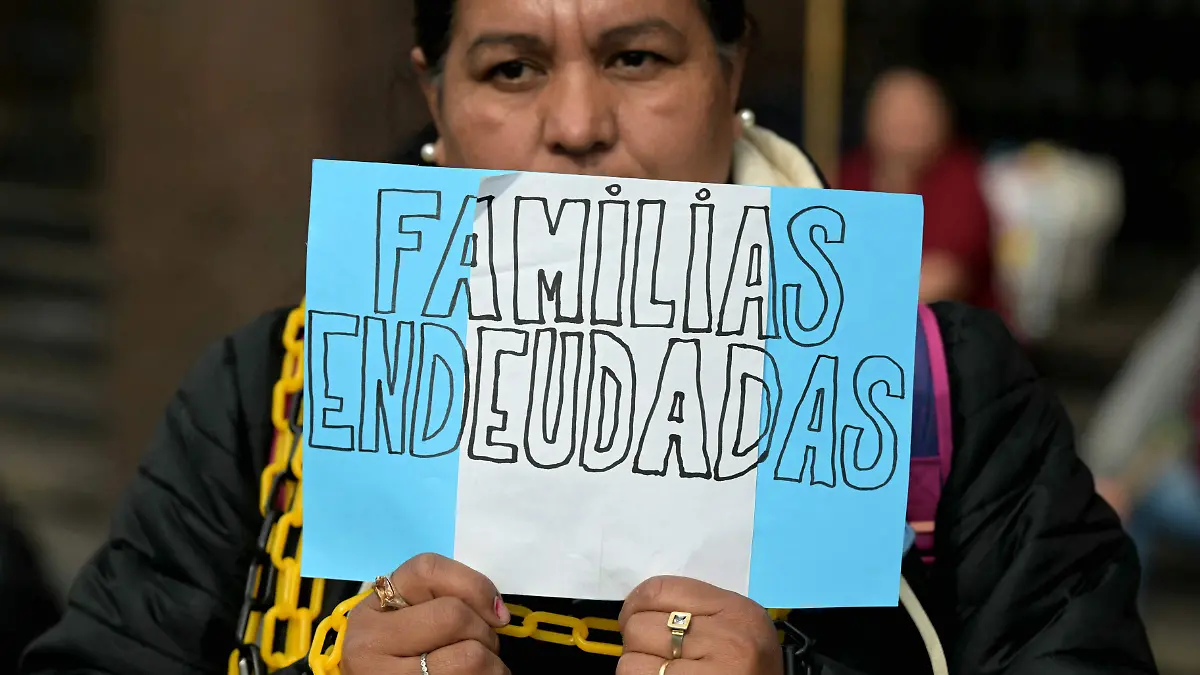 FAMiLiAS
ENDEUDADAS